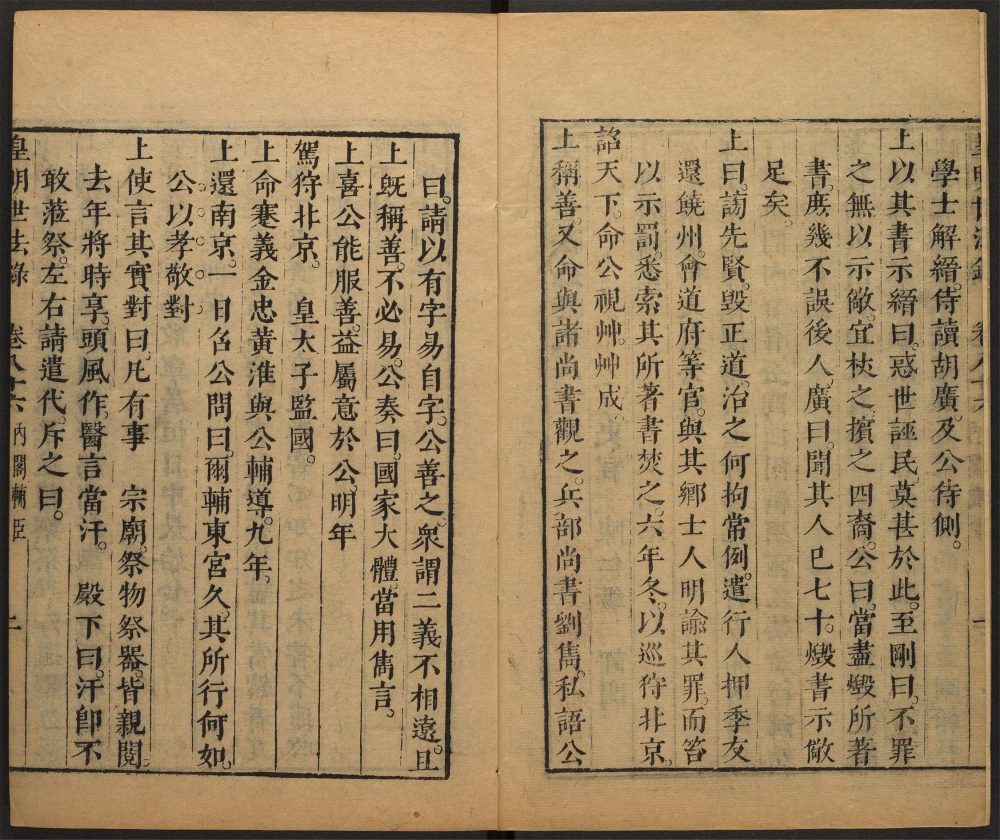 皇明世法錄 卷八十六 一
學士解縉。侍讀胡廣。及公侍側。
上以其書示縉曰。惑世誣民。莫甚於此。至剛曰。不罪
之無以示儆。宜杖之。擯之四裔。公曰。當盡燬所著
書。庶幾不誤後人。廣曰。聞其人已七十。燬書示儆
足矣。
上曰。謗先賢。毀正道。治之何拘常例。遣行人押季友
還饒州。會道府等官。與其鄉士人明諭其罪。而笞
以示罰。悉索其所著書焚之。六年冬。以巡狩北京。
詔天下。命公視艸。艸成。
上稱善。又命與諸尚書觀之。兵部尚書劉雋。私語公
曰。請以有字易自字。公善之。衆謂二義不相遠。且
上旣稱善。不必易。公奏曰。國家大體當用雋言。
上喜公能服善。益屬意於公。明年
駕狩北京。 皇太子監國。
上命蹇義金忠黃淮與公輔導。九年。
上還南京。一日召公問曰。爾輔東宮久。其所行何如。
公以孝敬對
上使言其實對曰。凡有事 宗廟。祭物祭器。皆親閱。
去年將時享。頭風作。醫言當汗。 殿下曰。汗卽不
敢蒞祭。左右請遣代。斥之曰。
皇明世法錄 卷八十六 內閣輔臣 二